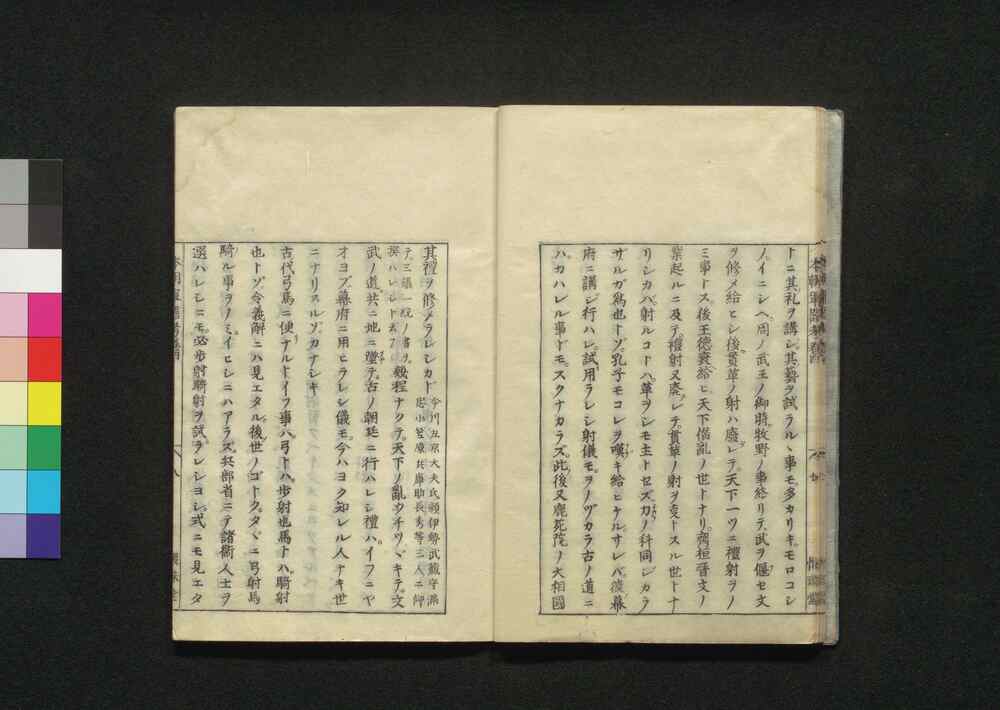 トニ其礼ヲ講シ其藝ヲ試ラルヽ事モ多カリキモロコシ
ノイニシヘ周ノ武王ノ御時牧野ノ事終リテ武ヲ偃セ文
ヲ修メ給ヒシ後貫革ノ射ハ廢レテ天下一ツニ禮射ヲノ
ミ事トス後王徳衰給ヒ天下僭乱ノ世トナリ齊桓晋文ノ
業起ルニ及テ禮射又廃レテ貫革ノ射ヲ事トスル世トナ
リシカハ射ルコトハ革ヲシモ主トセズ力ノ科同ジカラ
ザルガ為也トゾ孔子モコレヲ嘆キ給ヒケルサレバ後幕
府ニ講シ行ハレ試用ラレシ射儀モヲノヅカラ古ノ道ニ
ハカハレル事ドモスクナカラズ此後又鹿苑院ノ大相國
其禮ヲ修メラレシカド
今川左京大夫氏頼伊勢武蔵守満
忠小笠原兵庫助長秀等三人ニ仰
テ三議一統ノ書ヲ
撰ハレシト
幾程ナクテ天下ノ乱ウチツヾキテ文
武ノ道共ニ地ニ墮テ古ノ朝廷ニ行ハレシ禮ハイフニヤ
オヨブ幕府ニ用ヒラレシ儀モ今ハヨク知レル人ナキ世
ニナリヌルゾカナシキ
古代弓馬ニ便ナルトイフ事ハ弓トハ歩射也馬トハ騎射
也トゾ令義解ニハ見エタル後世ノゴトクタヾニ弓射馬
騎ル事ヲノミイヒシニハアラズ兵部省ニテ諸衛人士ヲ
選ハレシニモ必歩射騎射ヲ試ラレシヨシ式ニモ見エタ